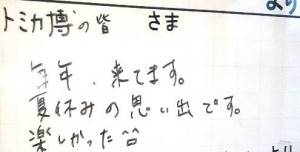 より
トミカ博の皆さま
毎年、来てます。
夏休みの思い出です。
楽しかった
より